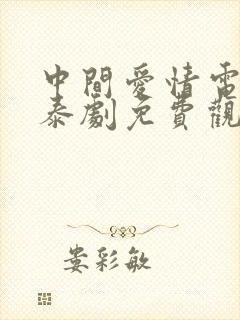 中間愛情電
泰劇免費觀
婁彩敏